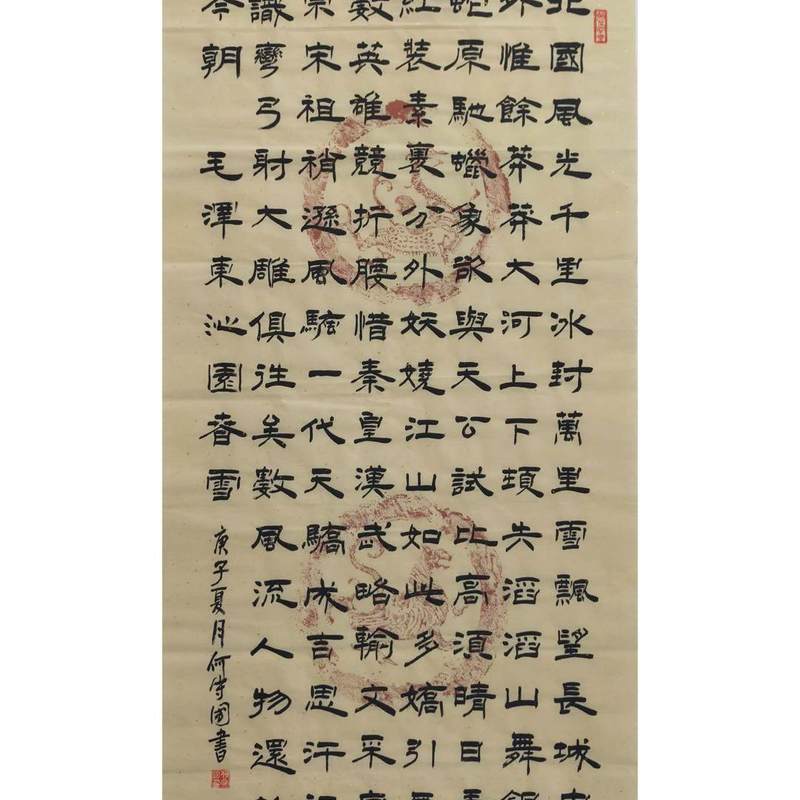 北國風光千里冰封萬里雪飄望長城
外惟餘莽莽大河上下頓失滔滔山舞銀
蛇原馳蠟象欲與天公試比高須晴日
紅裝素裹分外妖嬈江山如此多嬌引
數英雄競折腰惜秦皇漢武略輸文采
宗宋祖稍遜風騷一代天驕成吉思汗
識彎弓射大雕俱往矣數風流人物還
今朝 毛澤東沁園春雪
庚子夏月何守國書